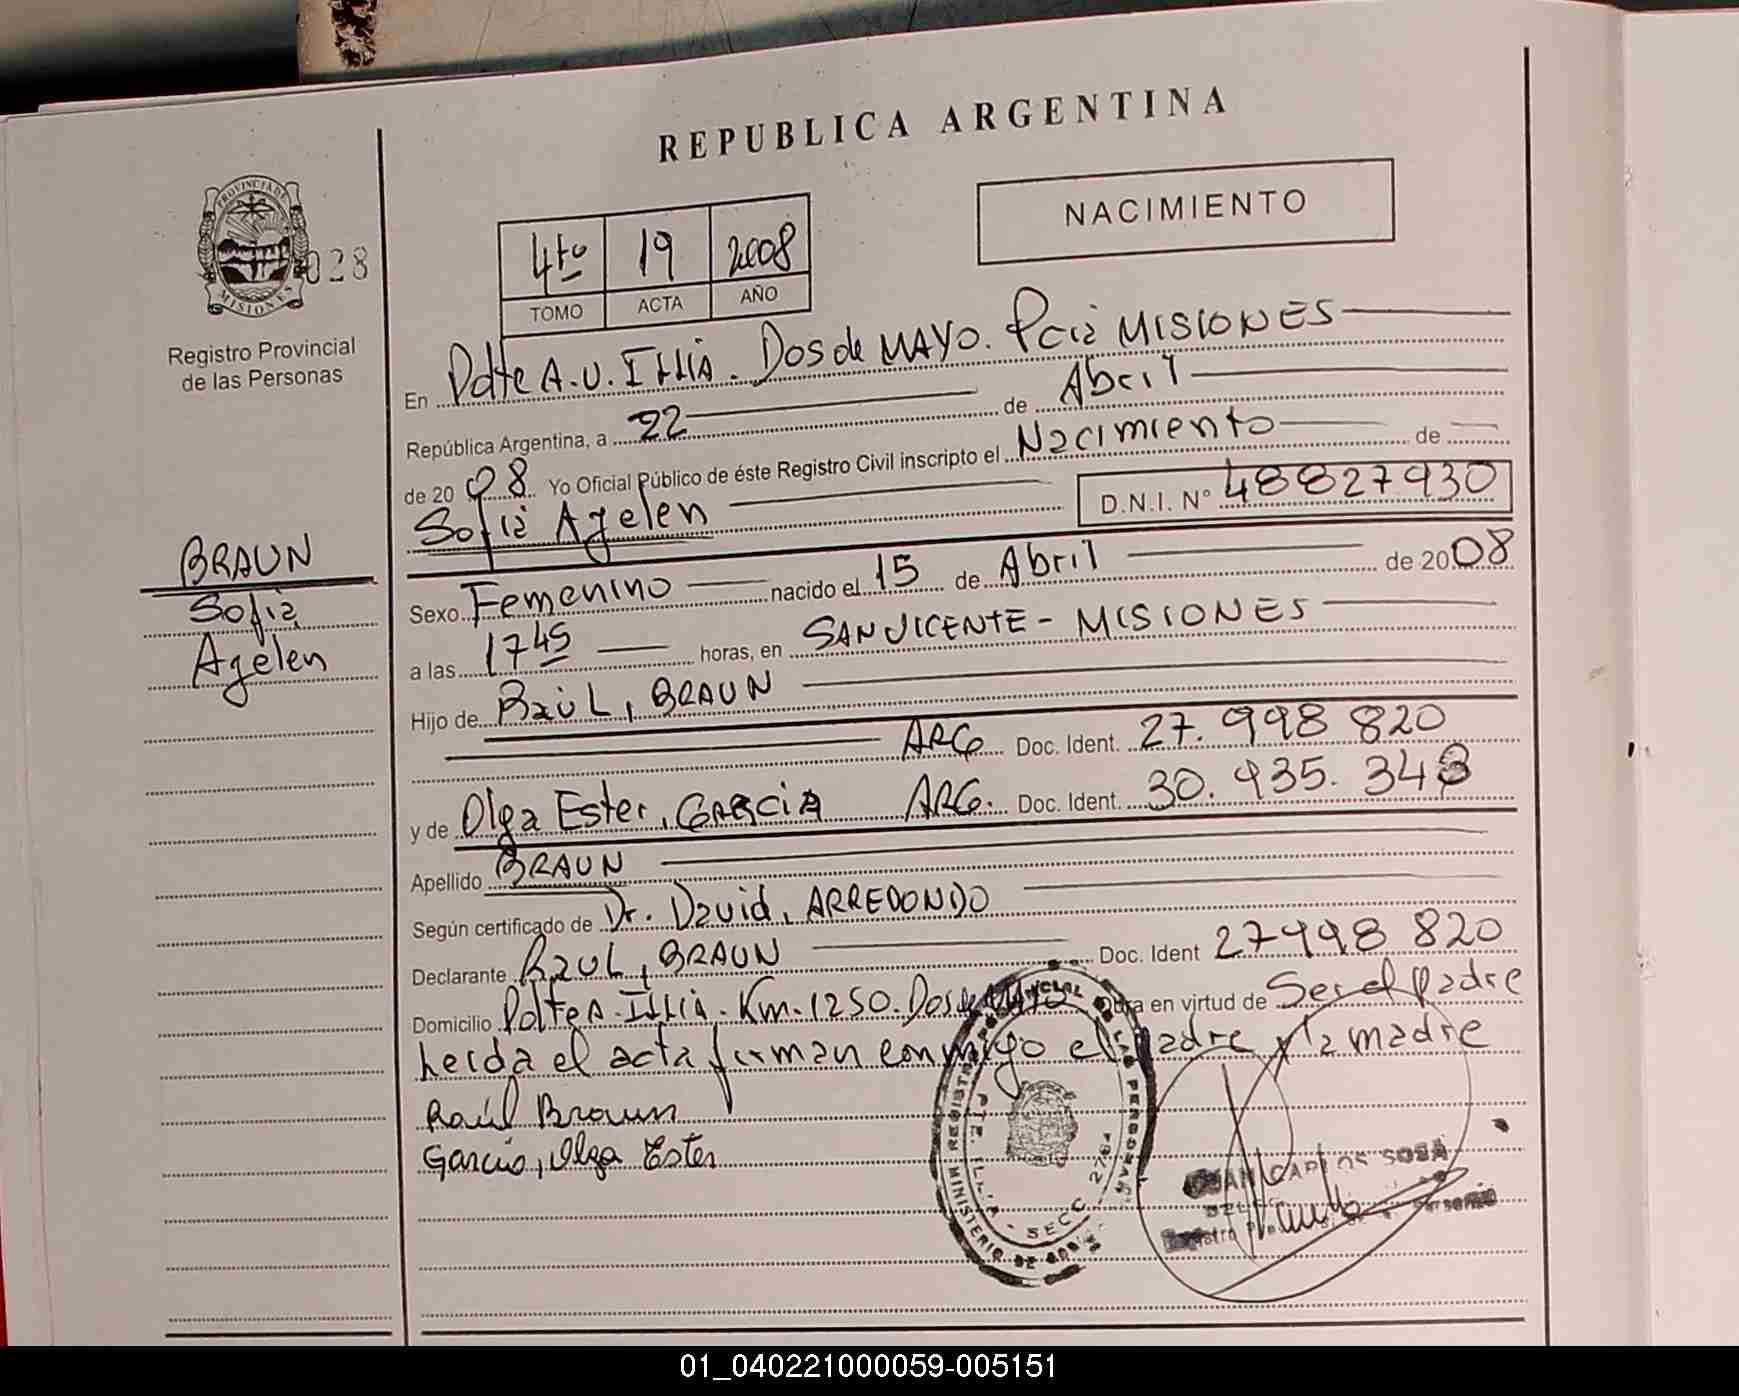 REPUBLICA ARGENTINA
NACIMIENTO
PROVINCIA DE
MISIONES
028
Registro Provincial
de las Personas
4to 19 2008
TOMO ACTA AÑO
En Pdte A.U. Illia. Dos de MAYO. Pcia MISIONES
República Argentina, a 22 de Abril
de 2008 Yo Oficial Público de éste Registro Civil inscripto el Nacimiento de
Sofia Ayelen D.N.I. N° 48827930
BRAUN
Sofia
Ayelen
Sexo Femenino nacido el 15 de Abril de 2008
a las 17 45 horas, en SAN VICENTE - MISIONES
Hijo de Raúl, BRAUN
ARG Doc. Ident. 27.998 820
y de Olga Ester, GARCIA ARG. Doc. Ident. 30.935.343
Apellido BRAUN
Según certificado de Dr. David, ARREDONDO
Declarante Raul, BRAUN Doc. Ident 27998 820
Domicilio Pdte A. Illia. Km. 1250. Dos de Mayo Obra en virtud de Ser el padre
heida el acta firman conmigo el padre y la madre
Raúl Braun
García, Olga Ester
REGISTRO PROVINCIAL DE LAS PERSONAS
MINISTERIO DE
PTE. ILLIA - SECC. 2764
JUAN CARLOS SOSA
01_040221000059-005151